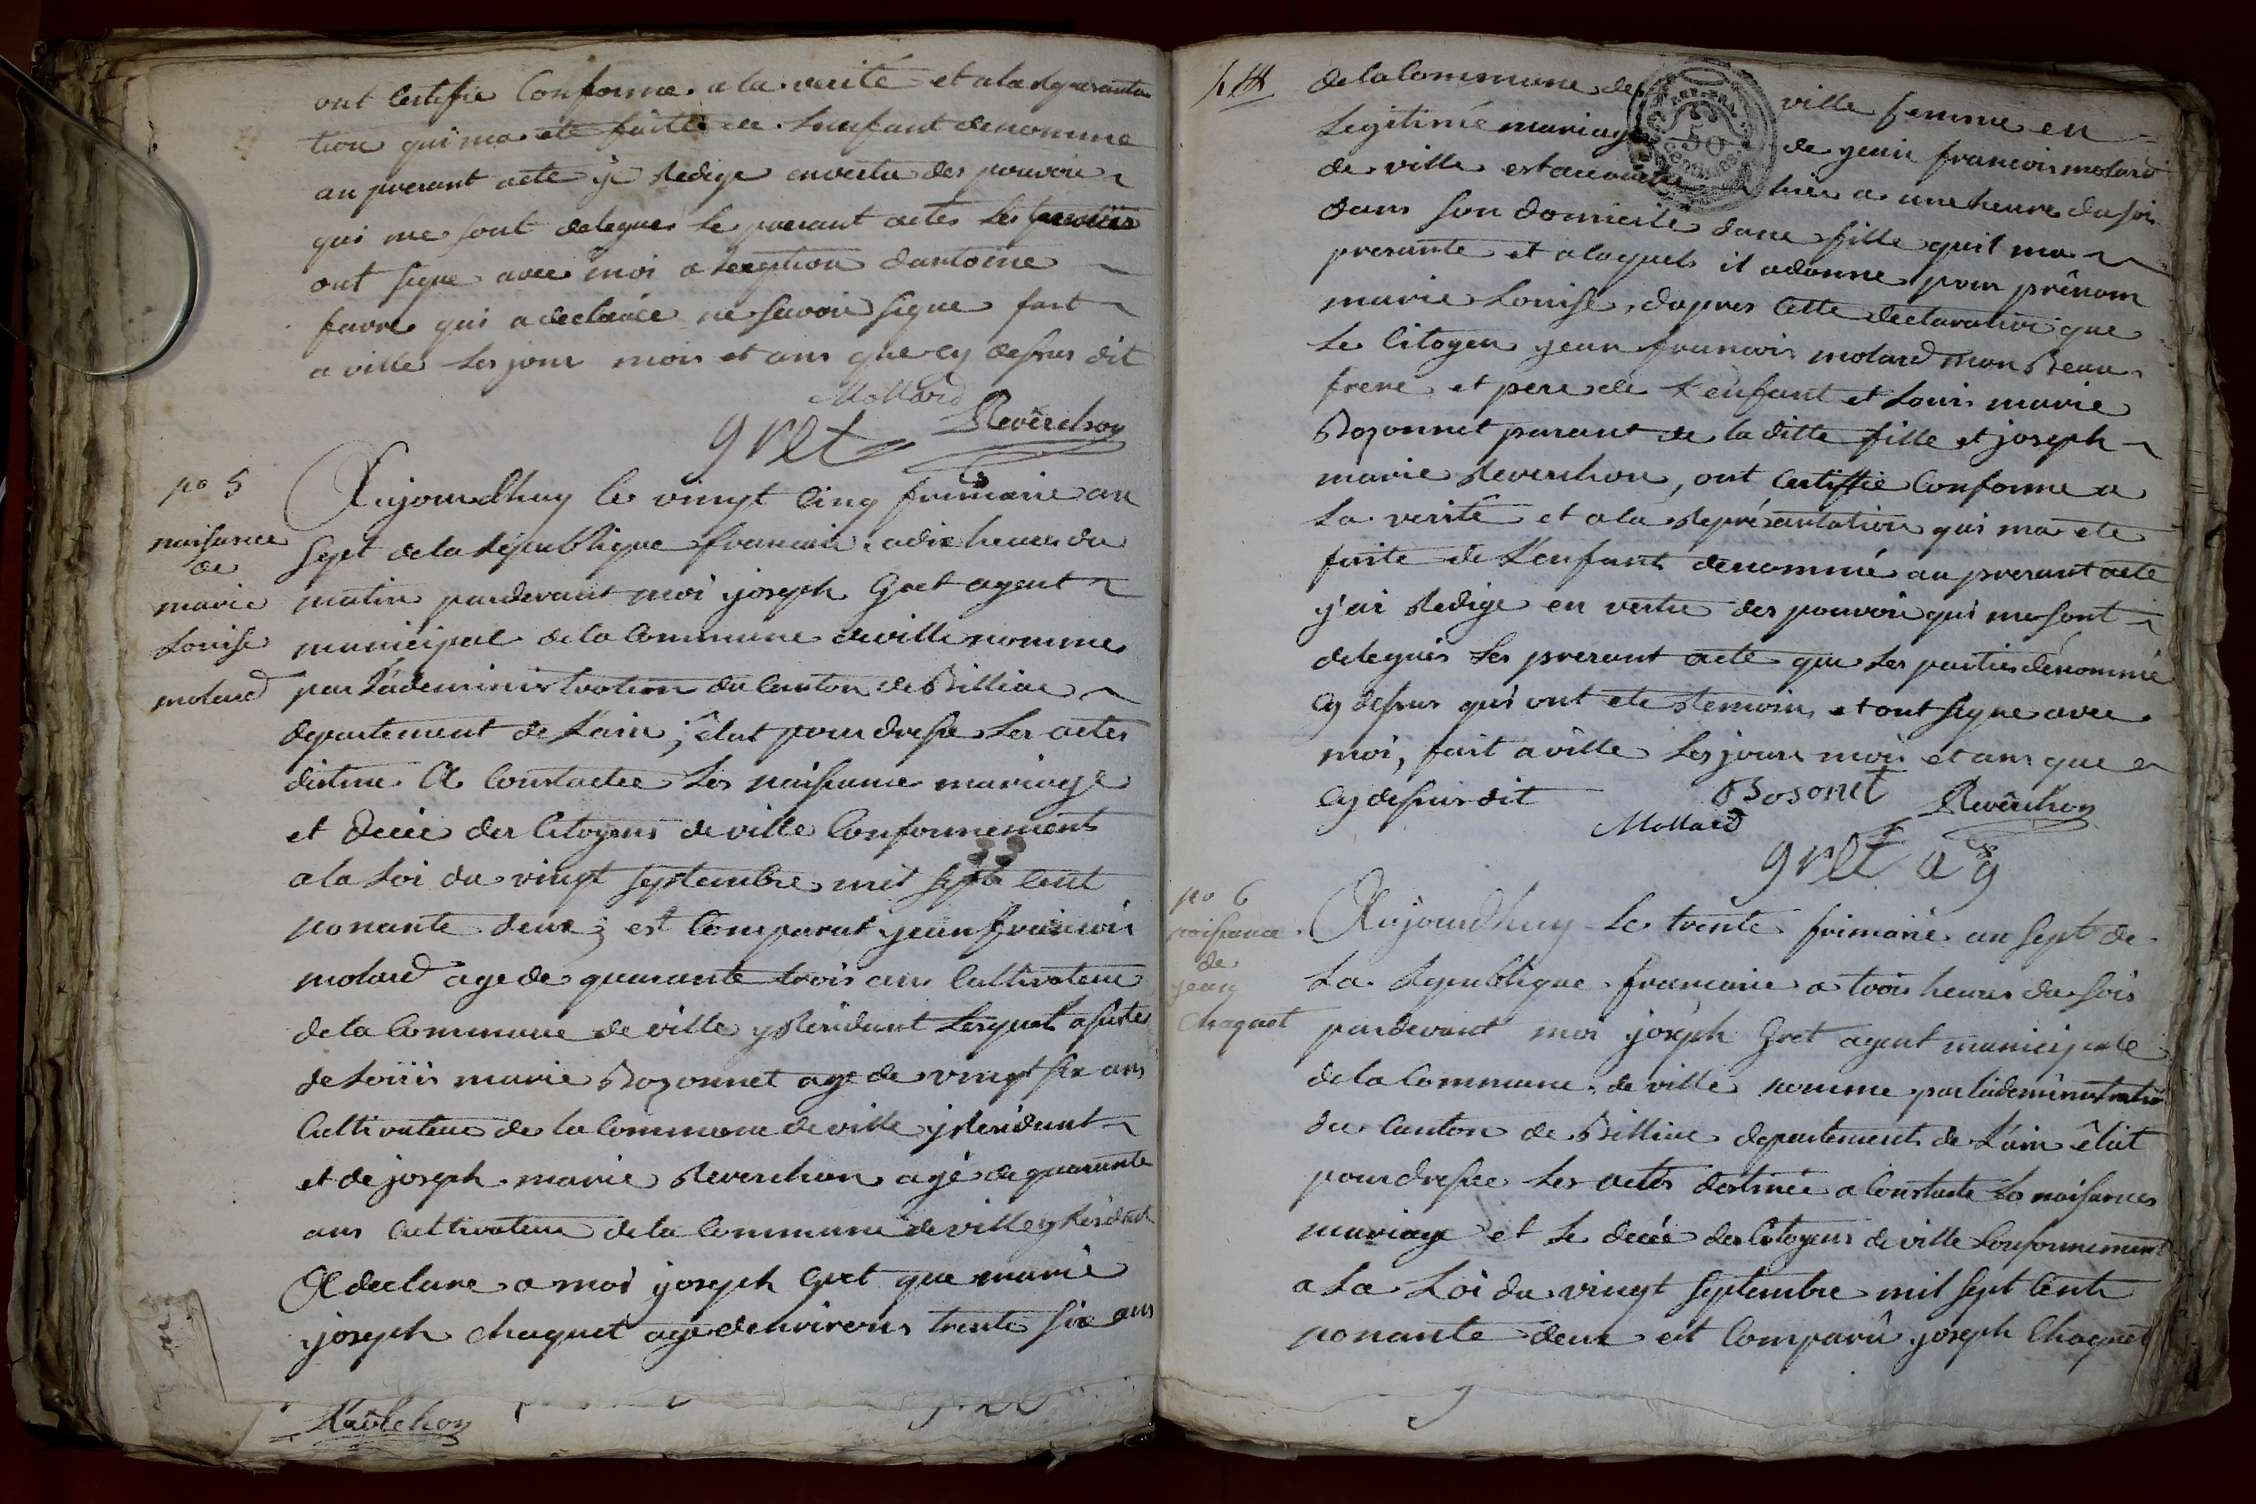 ont certifie conforme a la verité et a la represanta
tion qui ma ete faite de lenfant denomme
au presant acte j'e redige en vertu des pouvoir
qui me sont delegues le presant actes les parties
ont signe avec moi a l'exeption dantoine
favre qui a declarée ne savoir signe fait
a ville les jour mois et ans que cy dessus dit
Mollard
gret Reverchon
no 5
naissance
de
marie
Louise
molard
Aujourdhuy le vingt cinq frimaire an
sept de la république francaise a dix heures du
matin pardevant moi joseph Gret agent
municipal de la commune de ville nomme
par l'administration du canton de Billiac
departement de l'ain ; élut pour dresse les actes
distine a constatee les naissance mariage
et decée des citoyens de ville conformement
a la loi du vingt septembre mil sept cent
nonante deux ; est comparut jean francois
molard age de quarante trois ans cultivateur
de la commune de ville y residant lesquel assistes
de louis marie Bozonnet age de vingt six ans
cultivateur de la commune de ville y residant
et de joseph marie Reverchon agé de quarante
ans cultivateur de la commune de ville y résidant
A declare a moi joseph Gret que marie
joseph chaquet age denvirons trente six ans
Reverchon
de la commune de ville femme en
legitimé mariage de jean francois molard
de ville est accouchée hier a une heure du soir
dans son domicile dune fille quil ma
presante et a laquels il adonne pour prénom
marie Louise, dapres cette declaration que
le citoyen jean francois molard mon Beau
frere et pere de l'enfant et Louis marie
Bozonnet parant de la ditte fille et joseph
marie Reverchon, ont certiffie conforme a
la verité et a la représantation qui ma ete
faite de l'enfant denommé au presant acte
j'ai redige en vertu des pouvoir qui me sont
delegués les presant acte que les parties dénommé
cy dessus qui ont ete temoins et ont signe avec
moi, fait a ville les jours mois et ans que
cy dessus dit Bosonet
Mollard Reverchon
gret ag
no 6
naissance
de
jean
Chaquet
Aujourdhuy le trente frimaire an sept de
la republique francaise a trois heures du soir
pardevant moi joséph Gret agent municipale
de la commune de ville nomme par l'administration
du canton de Billiac departement de l'ain élut
pour dressee les actes destinée a constate les naissances
mariage et le decée des citoyens de ville conformement
a la loi du vingt septembre mil sept cent
nonante deux est comparû joseph Chaquet